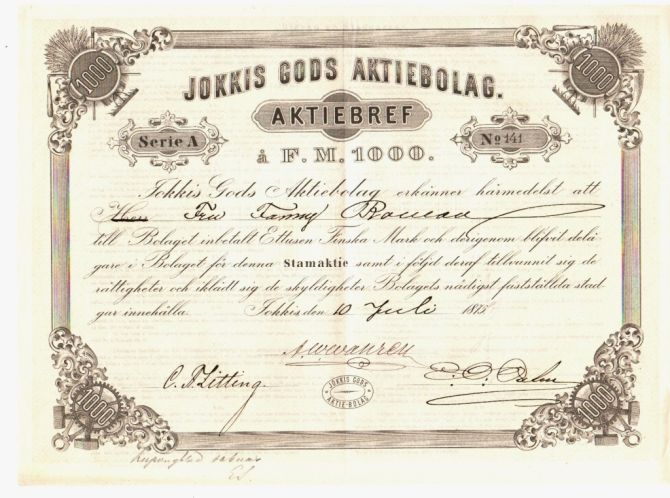 1000 1000
JOKKIS GODS AKTIEBOLAG.
AKTIEBREF
Serie A No 141
à F. M. 1000.
Jokkis Gods Aktiebolag erkänner härmedelst att
Herr Fru Fanny
till Bolaget inbetalt Ettusen Finska Mark och derigenom blifvit delä
gare i Bolaget för denna Stamaktie samt i följd deraf tillvunnit sig de
rättigheter och iklädt sig de skyldigheter Bolagets nådigst fastställda stad
gar innehålla. Jokkis den 10 Juli 1875
A W Wahren
C. F. Litting. E. D. Palm
JOKKIS GODS
AKTIE-BOLAG
1000 1000